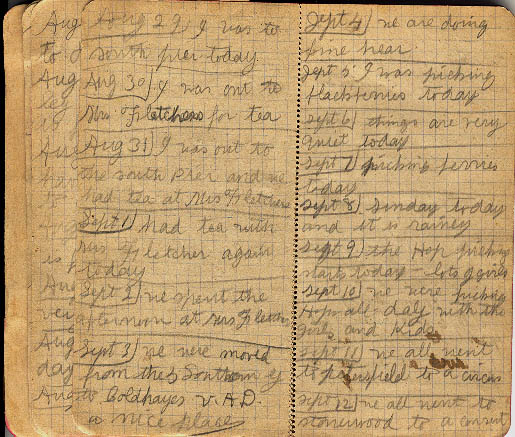 Aug
to
Aug
Aug
is
Aug
Aug
day
Aug
Aug 29) I was to
South pier today.
Aug 30) I was out to
Mrs. Fletchers for tea
Aug 31) I was out to
the south Pier and we
had tea at Mrs Fletchers
Sept 1) had tea with
Mrs Fletcher again
today
Sept 2) we spent the
afternoon at Mrs
Sept 3) we were moved
from the Southern
to Coldhayes V.A.D.
a nice place
Sept 4) we are doing
fine hear.
Sept 5) I was picking
today
Sept 6) things are very
quiet today
Sept 7) picking
today
Sept 8) Sunday today
and it is rainey
Sept 9) the Hop picking
starts today - lots girls
Sept 10) we were picking
Hops all day with the
girls and Kids
Sept 11) we all went
to petersfield to a circus
Sept 12) we all went to
stonewood to a consert